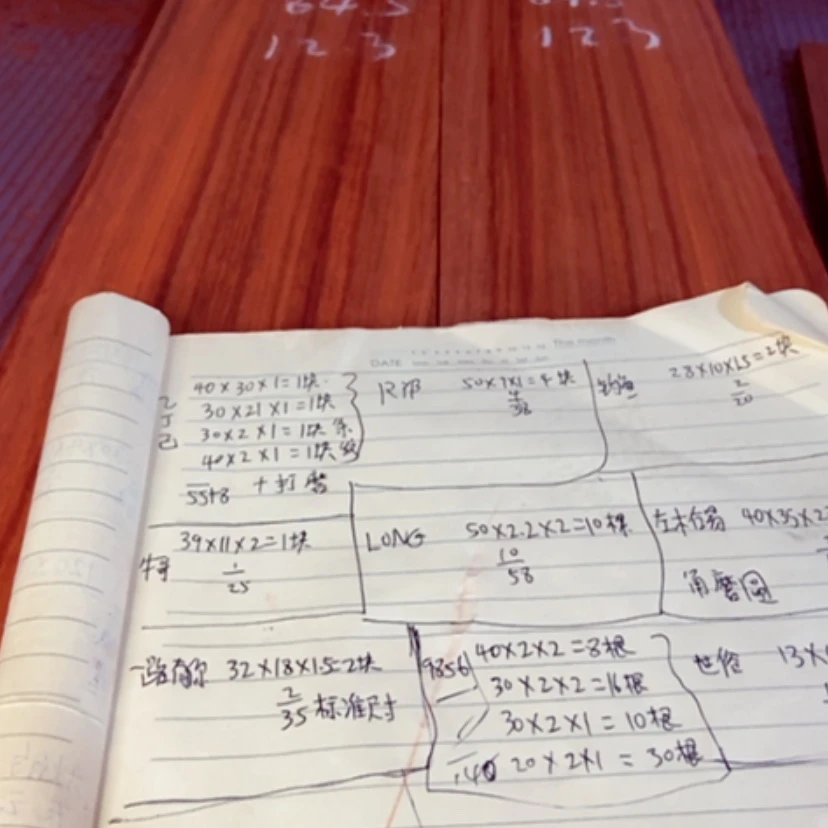 64.5
123
123
DATE
40×30×1=1块
30×21×1=1块
30×2×1=1块
40×2×1=1块
55+8 +打磨
50×7×1=4块
4
38
28×10×1.5=2块
2
20
39×11×2=1块
1
25
LONG
50×2.2×2=10根
10
58
40×35×2
角磨圆
32×18×1.5=2块
2
35 标准尺寸
9856
40×2×2=8根
30×2×2=16根
30×2×1=10根
140 20×2×1=30根
13×